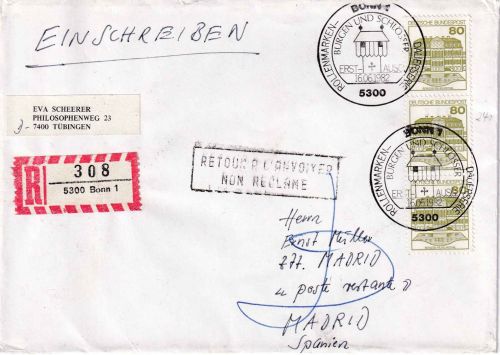 EINSCHREIBEN
EVA SCHEERER
PHILOSOPHENWEG 23
7400 TÜBINGEN
R 308
5300 Bonn 1
RETOUR A L'ENVOYER
NON RECLAME
BONN 1
ROLLENMARKEN-DAUERSERIE
BURGEN UND SCHLÖSSER
ERST- AUSG
16.06.1982
5300
DEUTSCHE BUNDESPOST
80
DEUTSCHE BUNDESPOST
80
BONN 1
ROLLENMARKEN-DAUERSERIE
BURGEN UND SCHLÖSSER
ERST- AUSG
16.06.1982
5300
80
240
Herrn
Ernst Müller
MADRID
poste restante
MADRID
Spanien